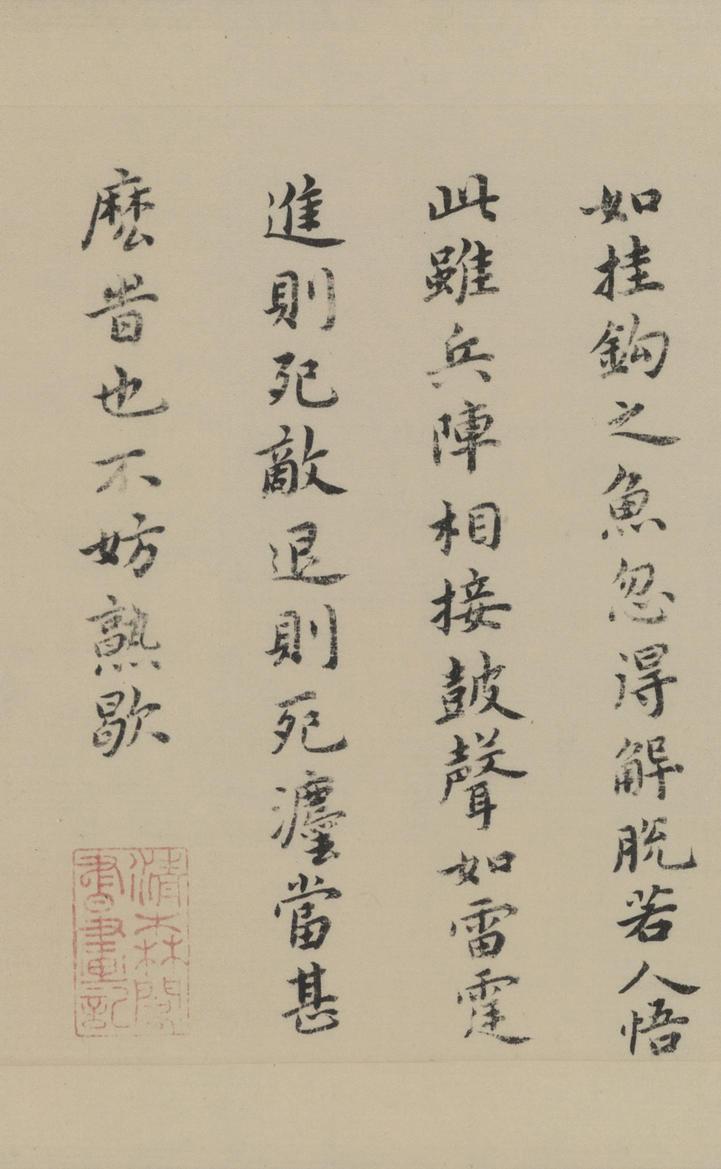 如挂鈎之魚忽得解脫若人悟
此雖兵陣相接鼓聲如雷霆
進則死敵退則死瀍當甚
麽昔也不妨熟歇
清森閣
書畫記